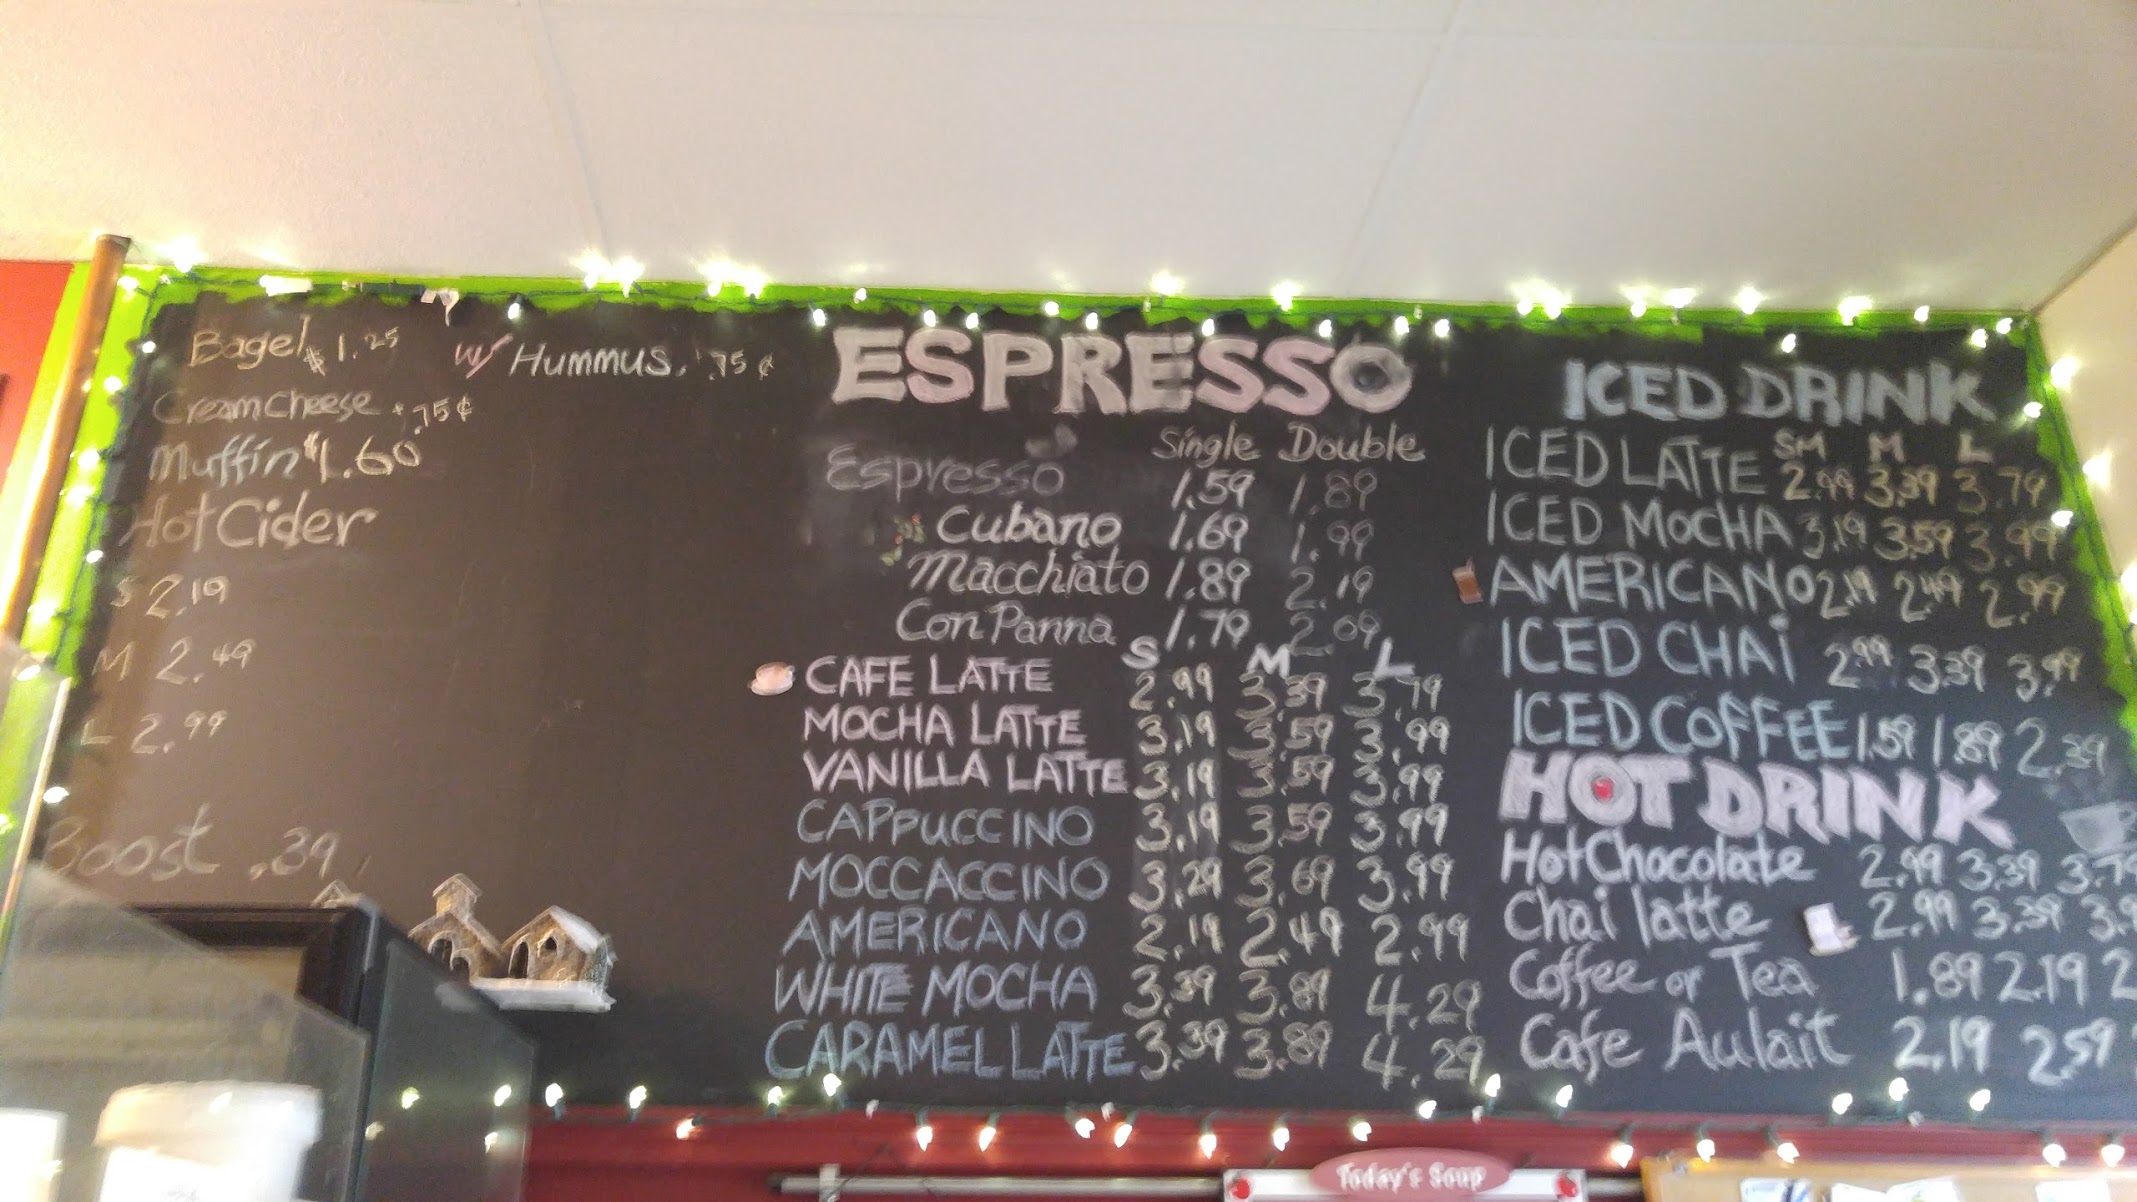 Bagel $1.25 w/ Hummus. .75¢
Cream cheese .75¢
Muffin $1.60
Hot Cider
S 2.19
M 2.49
L 2.99
Boost .39
ESPRESSO
Single Double
Espresso 1.59 1.89
Cubano 1.69 1.99
Macchiato 1.89 2.19
Con Panna 1.79 2.09
S M L
CAFE LATTE 2.99 3.39 3.79
MOCHA LATTE 3.19 3.59 3.99
VANILLA LATTE 3.19 3.59 3.99
CAPPUCCINO 3.19 3.59 3.99
MOCCACCINO 3.29 3.69 3.99
AMERICANO 2.19 2.49 2.99
WHITE MOCHA 3.39 3.89 4.29
CARAMEL LATTE 3.39 3.89 4.29
ICED DRINK
SM M L
ICED LATTE 2.99 3.39 3.79
ICED MOCHA 3.19 3.59 3.99
AMERICANO 2.19 2.49 2.99
ICED CHAi 2.99 3.39 3.99
ICED COFFEE 1.59 1.89 2.39
HOT DRINK
Hot Chocolate 2.99 3.39 3.79
Chai latte 2.99 3.39
Coffee or Tea 1.89 2.19
Cafe Aulait 2.19 2.59
Today's Soup